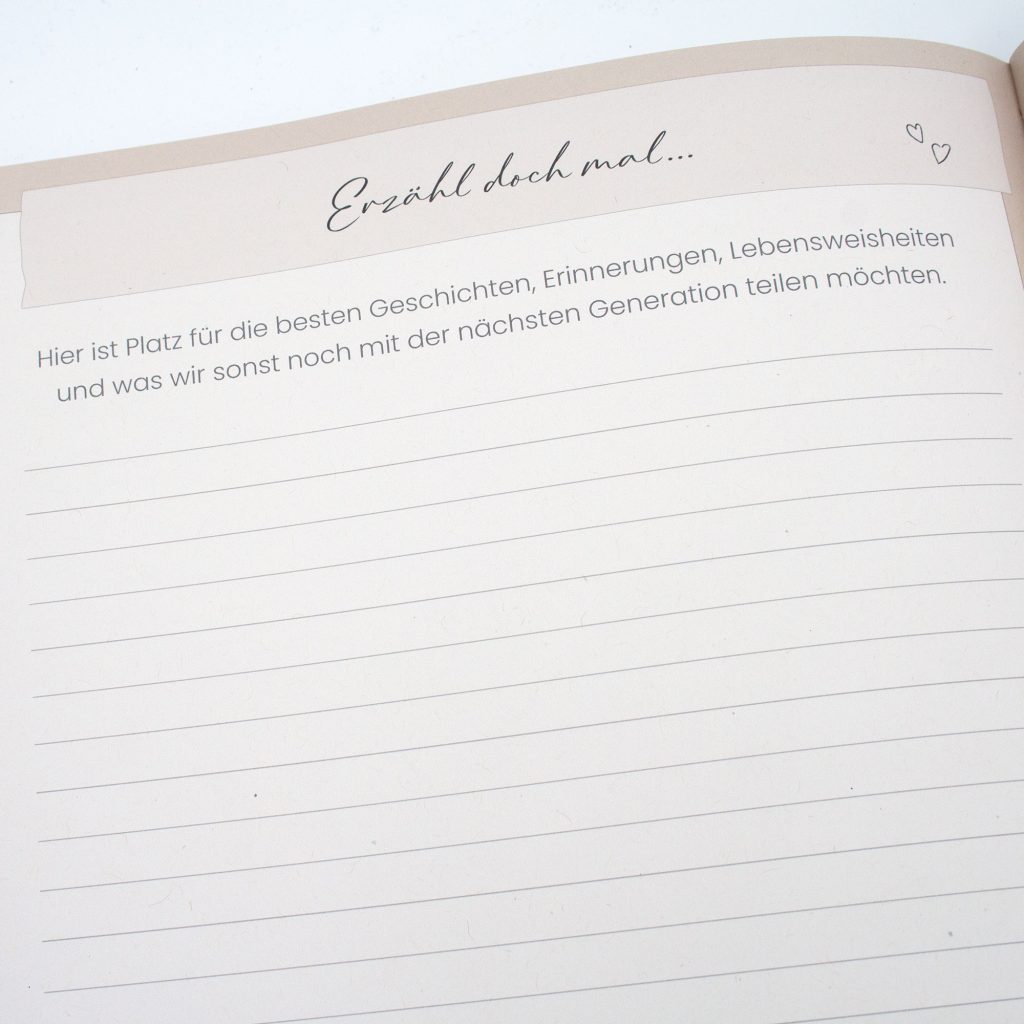 Erzähl doch mal...
Hier ist Platz für die besten Geschichten, Erinnerungen, Lebensweisheiten
und was wir sonst noch mit der nächsten Generation teilen möchten.